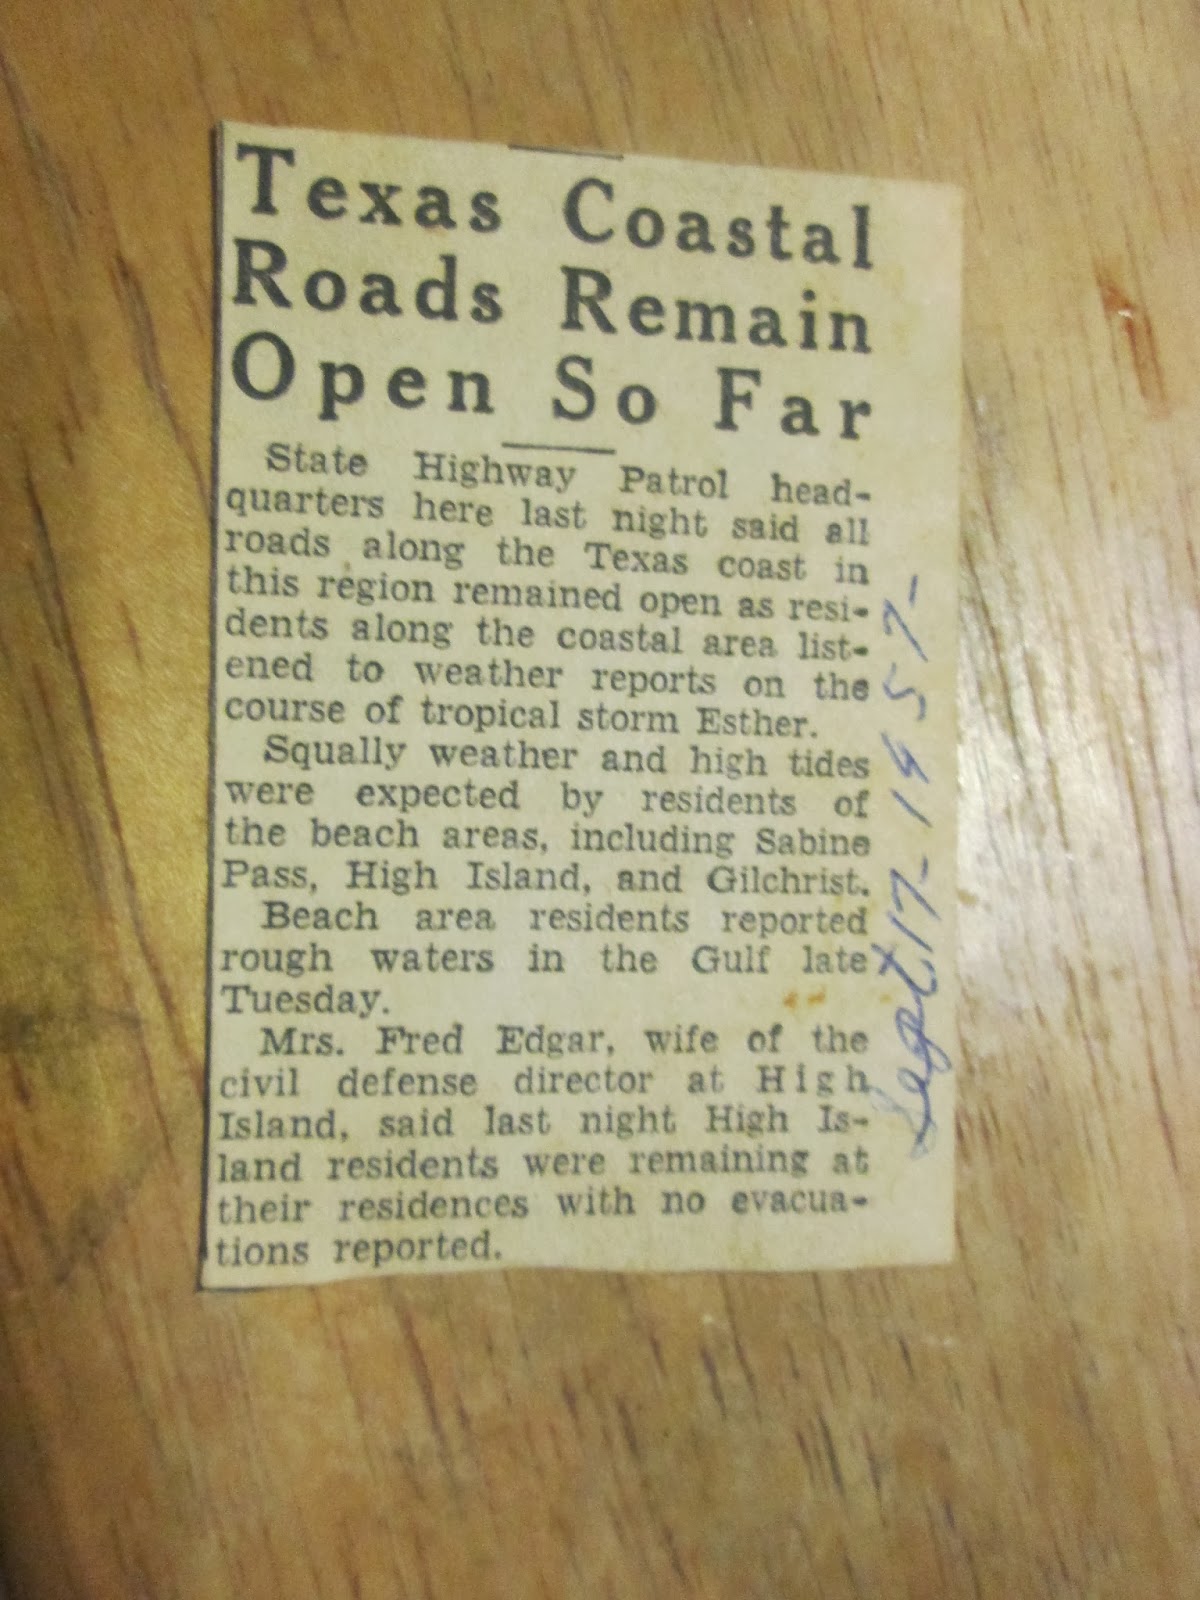 Texas Coastal
Roads Remain
Open So Far
State Highway Patrol head-
quarters here last night said all
roads along the Texas coast in
this region remained open as resi-
dents along the coastal area list-
ened to weather reports on the
course of tropical storm Esther.
Squally weather and high tides
were expected by residents of
the beach areas, including Sabine
Pass, High Island, and Gilchrist.
Beach area residents reported
rough waters in the Gulf late
Tuesday.
Mrs. Fred Edgar, wife of the
civil defense director at High
Island, said last night High Is-
land residents were remaining at
their residences with no evacua-
tions reported.
Sept. 17-1957-